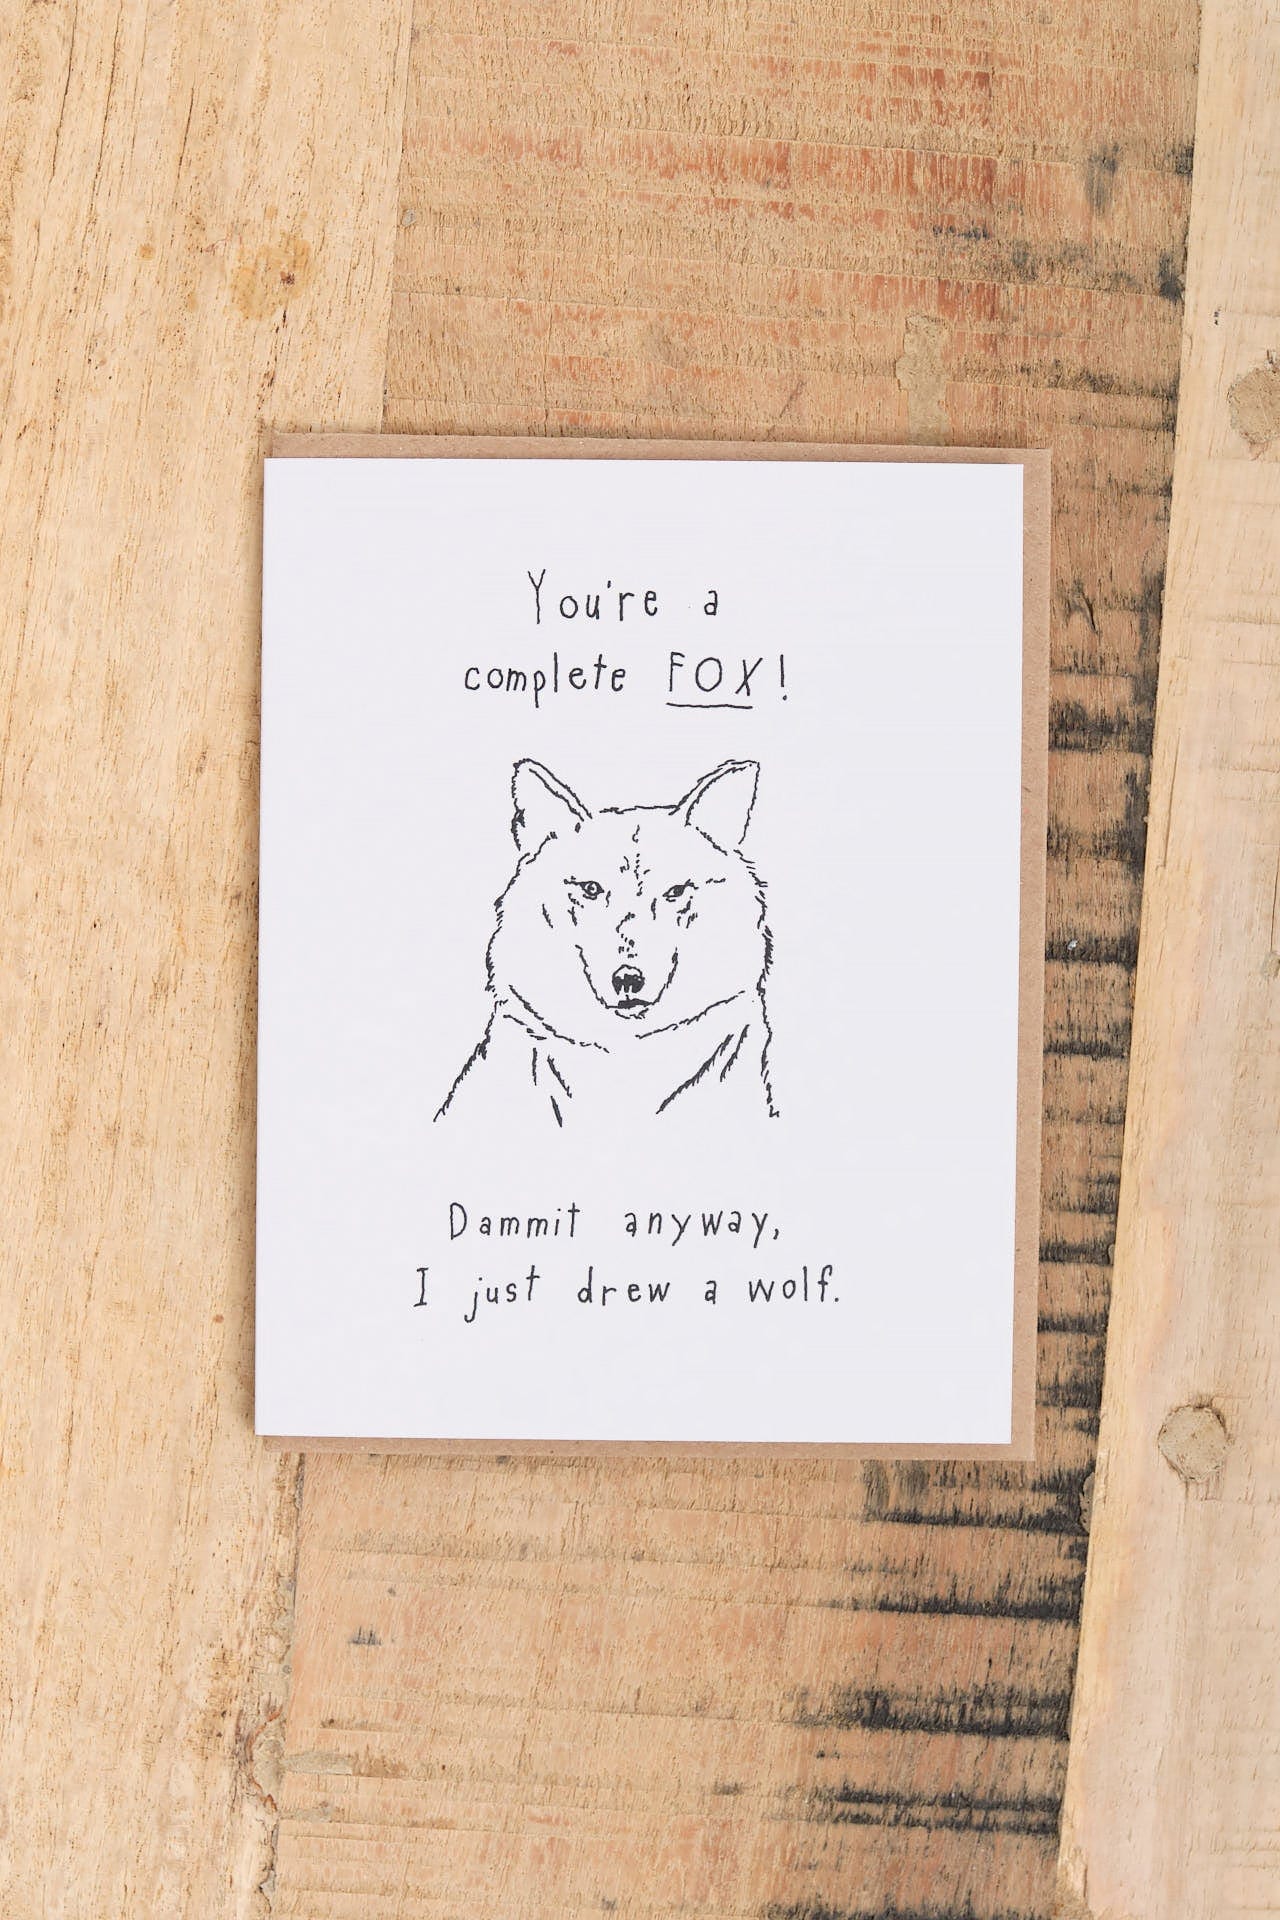 You're a
complete FOX!
Dammit anyway,
I just drew a wolf.